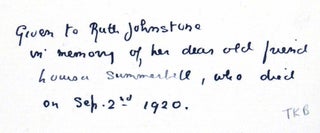 Given to Ruth Johnstone
in memory of her dear old friend
Summerbell, who died
on Sep. 2nd 1920.
TKB